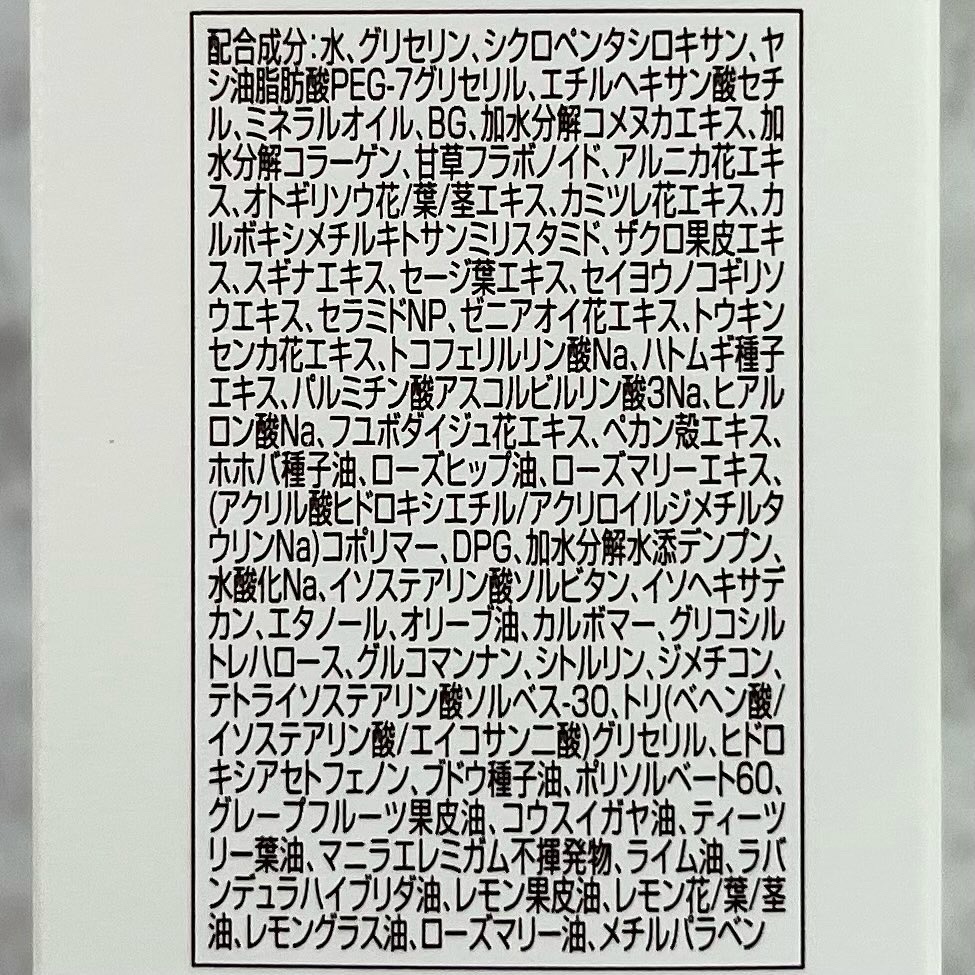 配合成分:水、グリセリン、シクロペンタシロキサン、ヤ
シ油脂肪酸PEG-7グリセリル、エチルヘキサン酸セチ
ル、ミネラルオイル、BG、加水分解コメヌカエキス、加
水分解コラーゲン、甘草フラボノイド、アルニカ花エキ
ス、オトギリソウ花/葉/茎エキス、カミツレ花エキス、カ
ルボキシメチルキトサンミリスタミド、ザクロ果皮エキ
ス、スギナエキス、セージ葉エキス、セイヨウノコギリソ
ウエキス、セラミドNP、ゼニアオイ花エキス、トウキン
センカ花エキス、トコフェリルリン酸Na、ハトムギ種子
エキス、パルミチン酸アスコルビルリン酸3Na、ヒアル
ロン酸Na、フユボダイジュ花エキス、ペカン殻エキス、
ホホバ種子油、ローズヒップ油、ローズマリーエキス、
(アクリル酸ヒドロキシエチル/アクリロイルジメチルタ
ウリンNa)コポリマー、DPG、加水分解水添デンプン、
水酸化Na、イソステアリン酸ソルビタン、イソヘキサデ
カン、エタノール、オリーブ油、カルボマー、グリコシル
トレハロース、グルコマンナン、シトルリン、ジメチコン、
テトライソステアリン酸ソルベス-30、トリ(ベヘン酸/
イソステアリン酸/エイコサン二酸)グリセリル、ヒドロ
キシアセトフェノン、ブドウ種子油、ポリソルベート60、
グレープフルーツ果皮油、コウスイガヤ油、ティーツ
リー葉油、マニラエレミガム不揮発物、ライム油、ラバ
ンデュラハイブリダ油、レモン果皮油、レモン花/葉/茎
油、レモングラス油、ローズマリー油、メチルパラベン